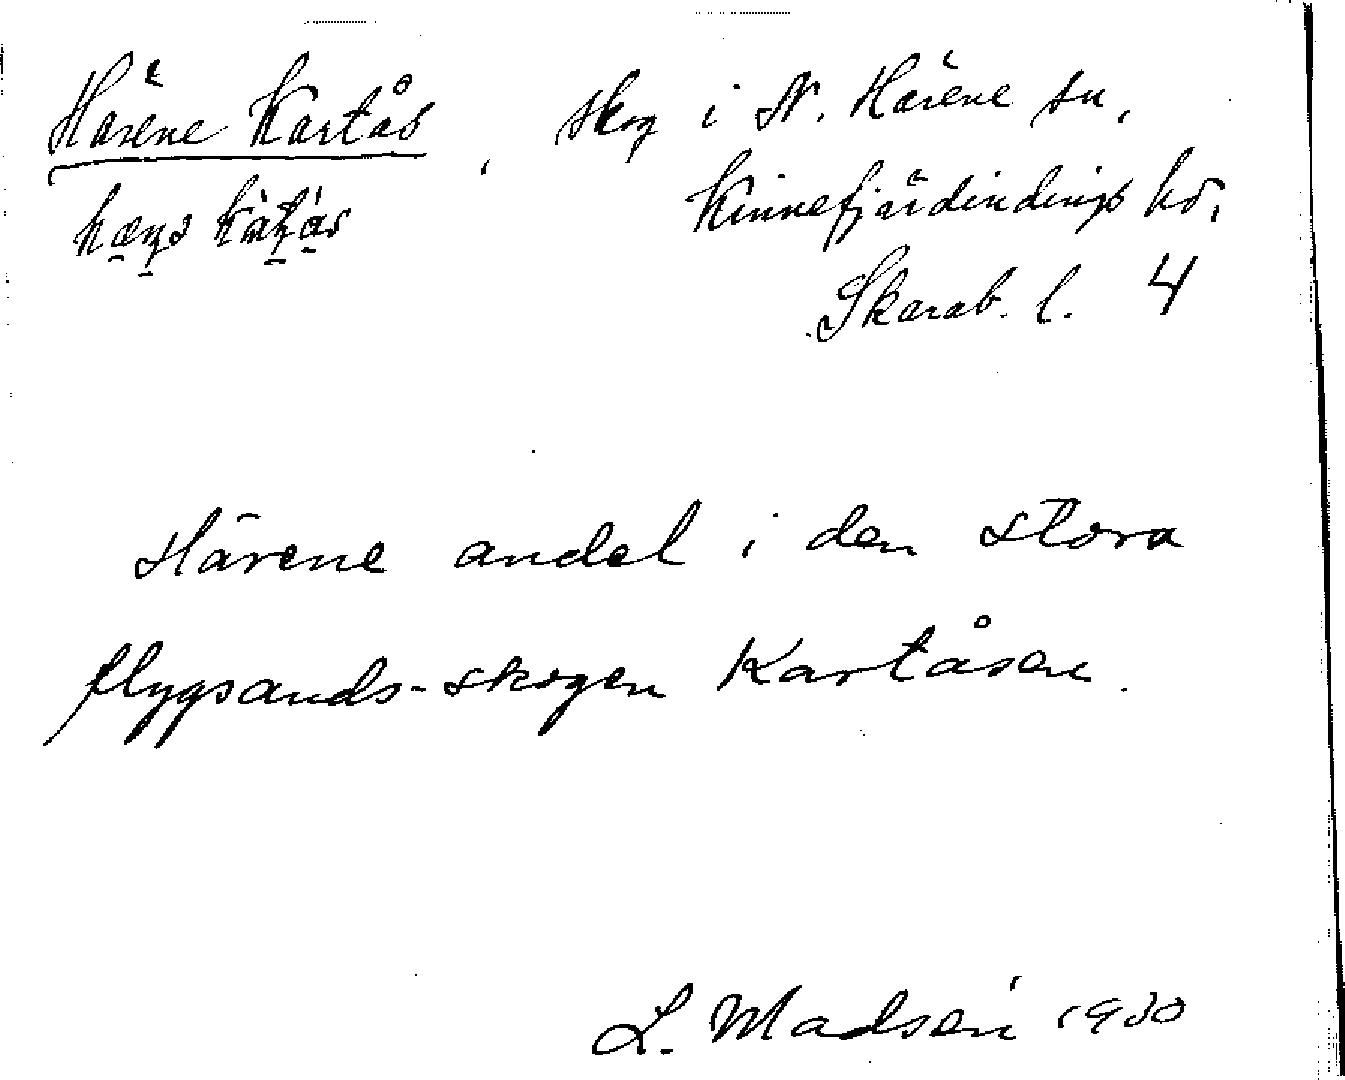 Härene Kartås, skog i N. Härene sn,
Kinnefjärdindings hd,
Skarab. l. 4
Härene andel i den stora
flygsands-skogen Kartåsen.
L. Madsén 1930